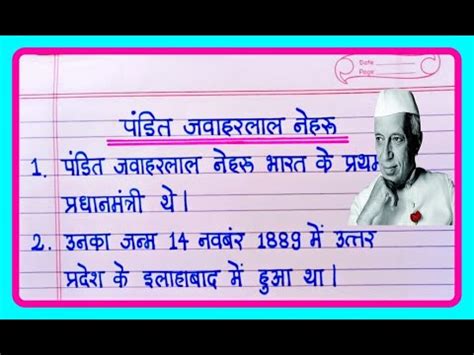 Date
Page
पंडित जवाहरलाल नेहरू
1. पंडित जवाहरलाल नेहरू भारत के प्रथम
प्रधानमंत्री थे।
2. उनका जन्म 14 नवबंर 1889 में उत्तर
प्रदेश के इलाहाबाद में हुआ था।